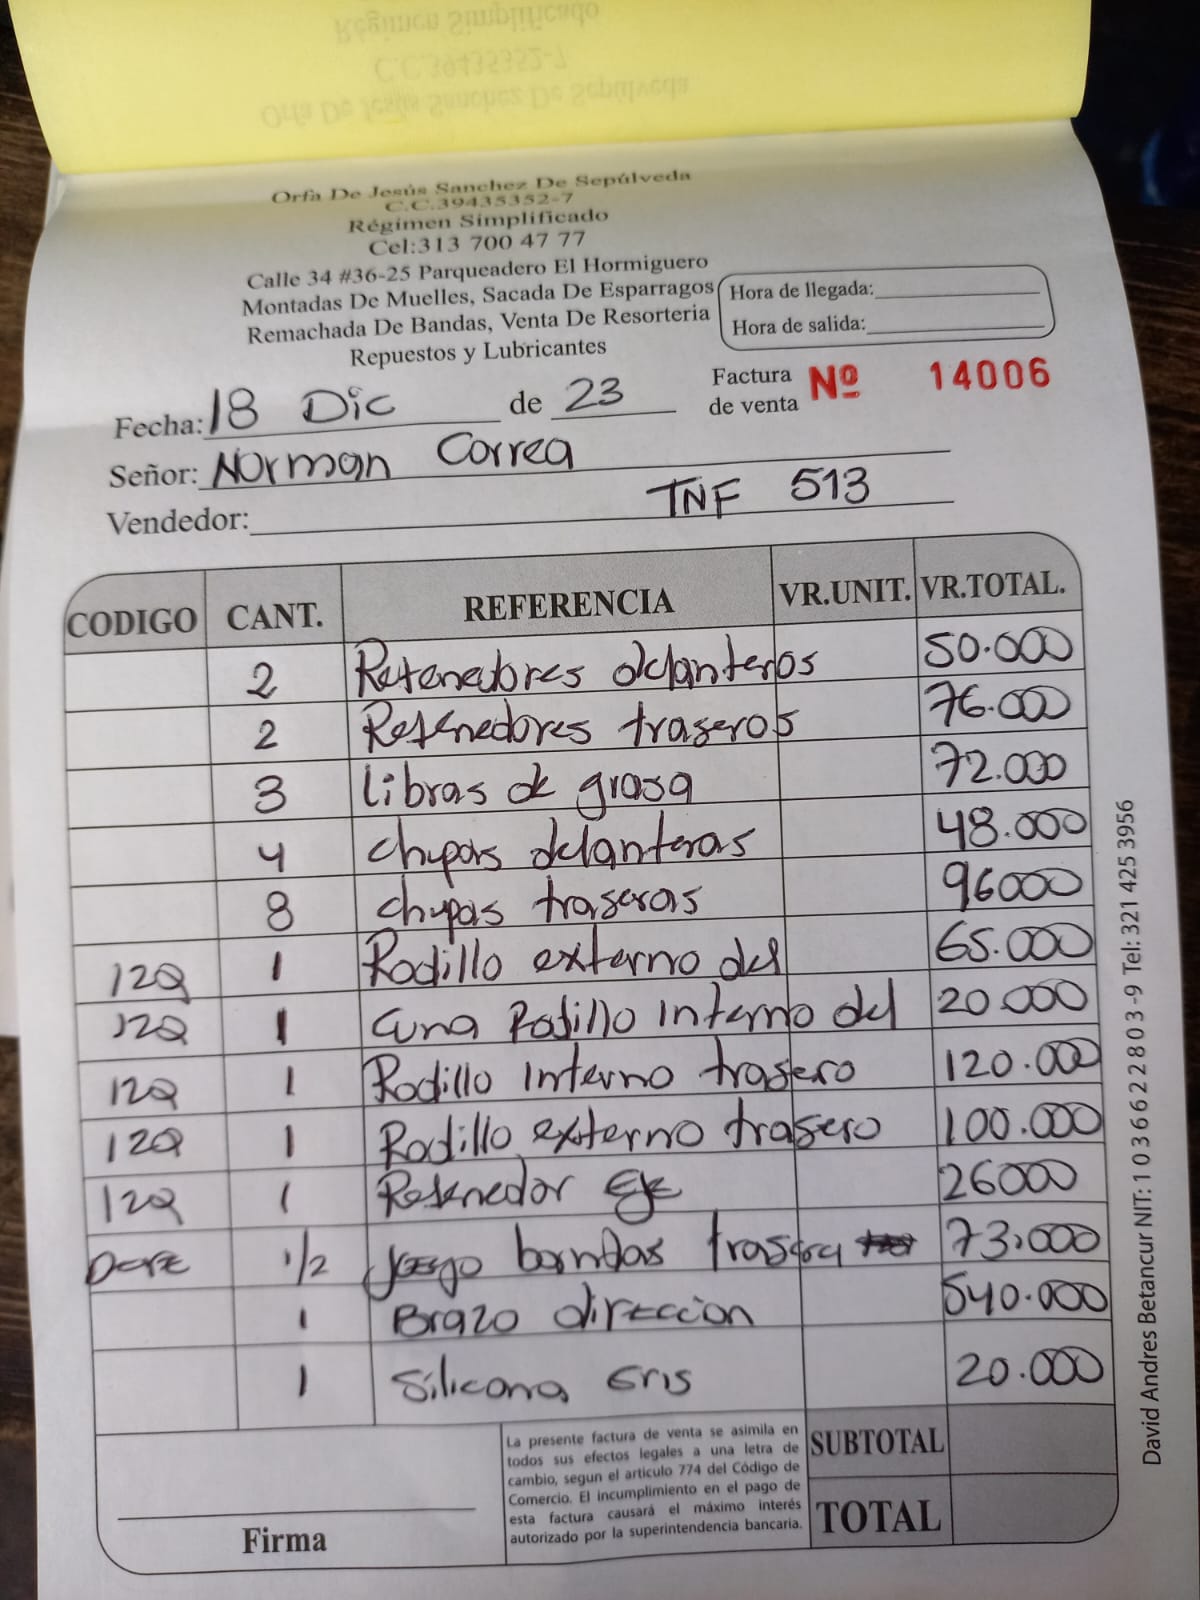 Orfa De Jesús Sanchez De Sepúlveda
C.C.39435352-7
Régimen Simplificado
Orfa De Jesús Sanchez De Sepúlveda
C.C.39435352-7
Régimen Simplificado
Cel:313 700 47 77
Calle 34 #36-25 Parqueadero El Hormiguero
Montadas De Muelles, Sacada De Esparragos
Remachada De Bandas, Venta De Resorteria
Repuestos y Lubricantes
Hora de llegada:
Hora de salida:
Factura de venta Nº 14006
Fecha: 18 Dic de 23
Señor: Norman Correa
Vendedor: TNF 513
CODIGO CANT. REFERENCIA VR.UNIT. VR.TOTAL.
2 Retenedores delanteros 50.000
2 Retenedores traseros 76.000
3 libras de grasa 72.000
4 chupas delanteras 48.000
8 chupas traseras 96000
12Q 1 Rodillo externo del 65.000
12Q 1 cuna Rodillo Interno del 20.000
12Q 1 Rodillo Interno trasero 120.000
12Q 1 Rodillo externo trasero 100.000
12Q 1 Retenedor Eje 26000
1/2 juego bandas trasera 73.000
1 Brazo direccion 540.000
1 Silicona Gris 20.000
La presente factura de venta se asimila en
todos sus efectos legales a una letra de
cambio, segun el articulo 774 del Código de
Comercio. El incumplimiento en el pago de
esta factura causará el máximo interés
autorizado por la superintendencia bancaria.
SUBTOTAL
TOTAL
Firma
David Andres Betancur NIT: 1036622803-9 Tel: 321 425 3956